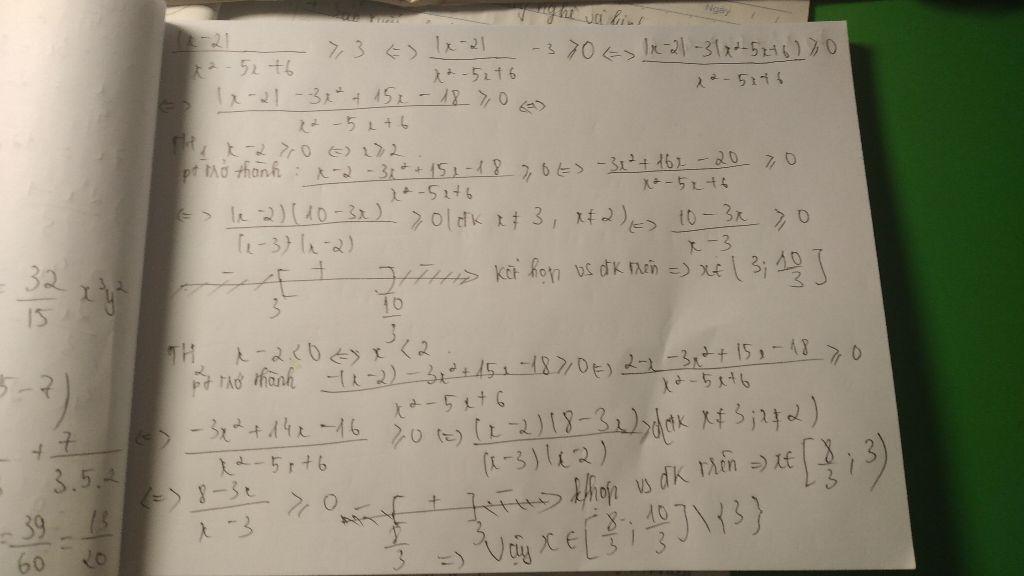 Ngày
|x-2| / (x² - 5x + 6) ⩾ 3 <=> |x-2| / (x² - 5x + 6) - 3 ⩾ 0 <=> (|x-2| - 3(x² - 5x + 6)) / (x² - 5x + 6) ⩾ 0
<=> (|x-2| - 3x² + 15x - 18) / (x² - 5x + 6) ⩾ 0 <=>
TH1 x - 2 ⩾ 0 <=> x ⩾ 2
pt trở thành : (x - 2 - 3x² + 15x - 18) / (x² - 5x + 6) ⩾ 0 <=> (-3x² + 16x - 20) / (x² - 5x + 6) ⩾ 0
<=> (x-2)(10-3x) / (x-3)(x-2) ⩾ 0 (đk x ≠ 3, x ≠ 2) <=> (10 - 3x) / (x - 3) ⩾ 0
- [ + ] - 3 10/3 kết hợp vs đk trên => x ∈ [3; 10/3]
TH2 x - 2 < 0 <=> x < 2
pt trở thành (-(x-2) - 3x² + 15x - 18) / (x² - 5x + 6) ⩾ 0 <=> (2 - x - 3x² + 15x - 18) / (x² - 5x + 6) ⩾ 0
<=> (-3x² + 14x - 16) / (x² - 5x + 6) ⩾ 0 <=> (x-2)(8-3x) / (x-3)(x-2) ⩾ 0 (đk x ≠ 3; x ≠ 2)
<=> (8 - 3x) / (x - 3) ⩾ 0 - [ + ] - 8/3 3 k hợp vs đk trên => x ∈ [8/3; 3)
=> Vậy x ∈ [8/3; 10/3] \ {3}
= 32/15 x³y²
5 - 7)
+ 7 / 3.5.2
= 39/60 = 13/20